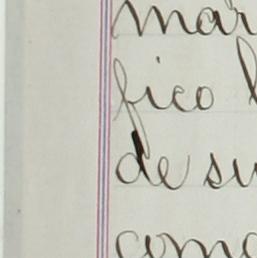 mar
fico
de su
como